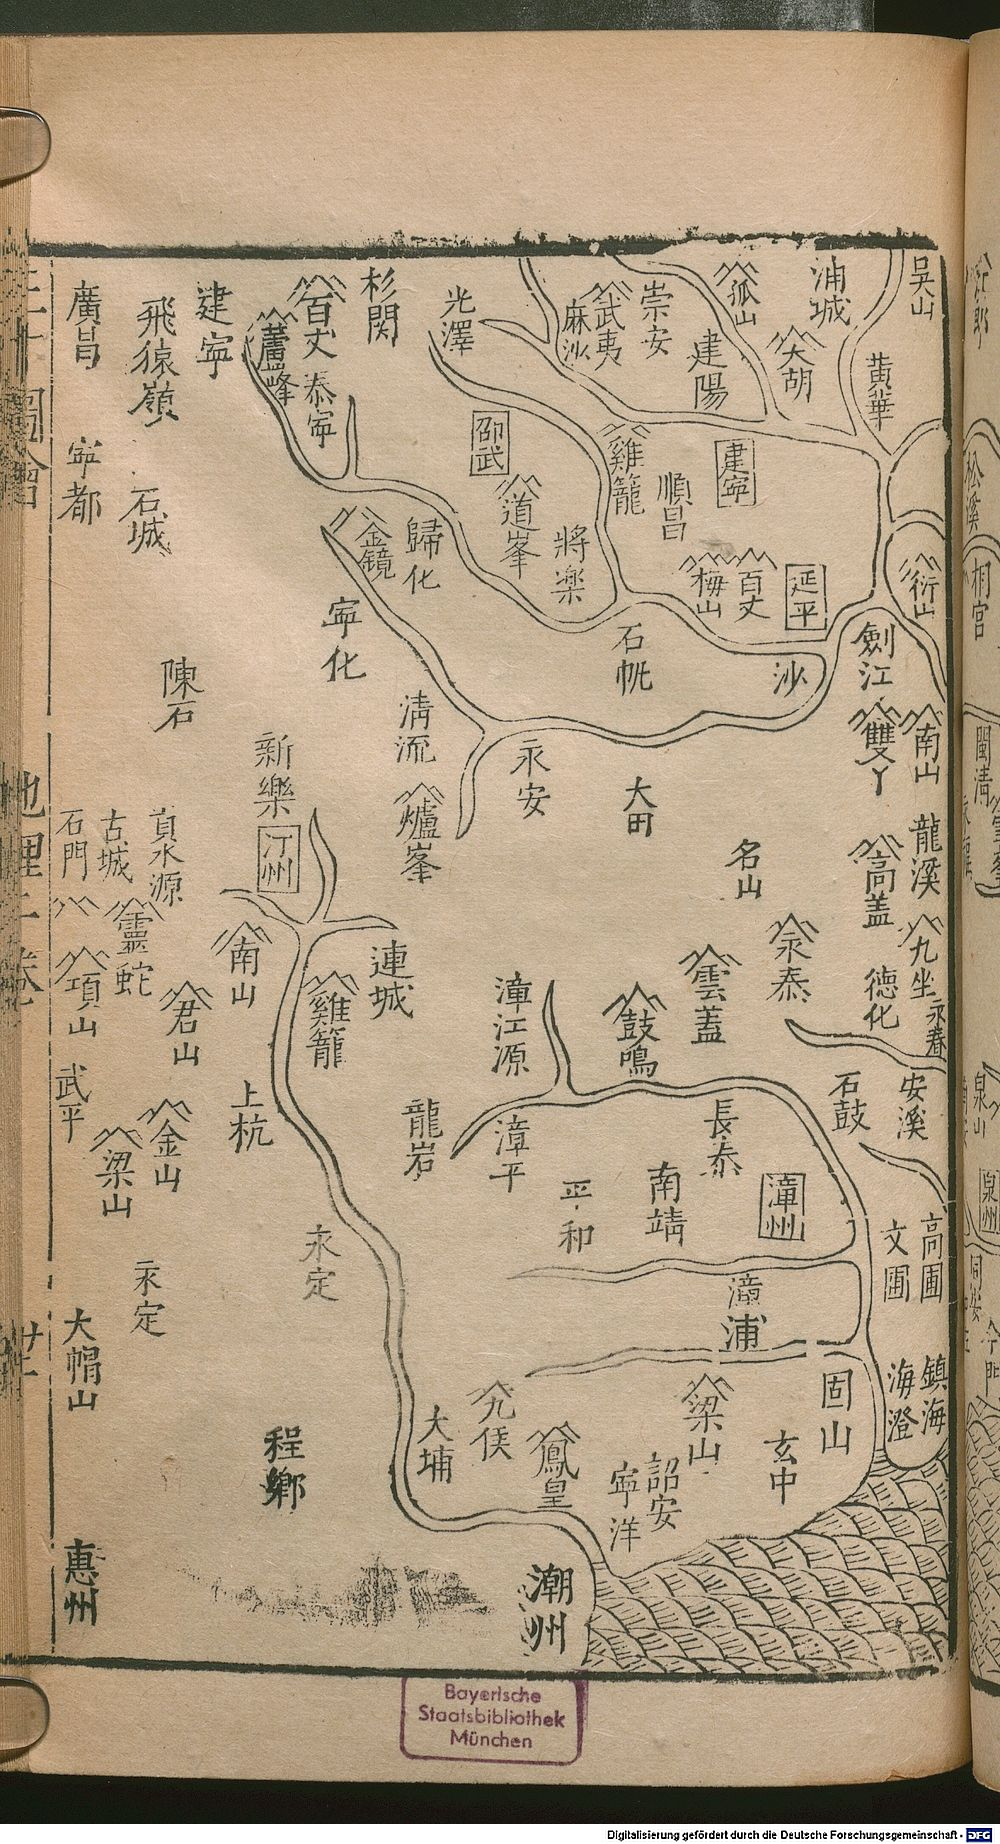 吳山
浦城
黃華
狐山
大胡
崇安
建陽
武夷
麻沙
雞籠
順昌
建寧
光澤
杉関
邵武
道峯
將楽
梅山
百丈
延平
衍山
劍江
石帆
沙
雙丫
南山
百丈
泰寧
蘆峰
建寧
飛猿嶺
廣昌
寧都
石城
金鏡
歸化
寧化
陳石
清流
永安
大田
名山
高盖
龍溪
九坐
德化
永春
新樂
汀州
爐峯
貢水源
古城
石門
靈蛇
項山
君山
南山
雞籠
連城
漳江源
鼓鳴
雲蓋
泉泰
石鼓
安溪
武平
梁山
金山
上杭
龍岩
漳平
長泰
漳州
南靖
平和
永定
永定
文圃
高圃
漳浦
大帽山
程鄉
大埔
鳳皇
寧洋
詔安
梁山
玄中
固山
海澄
鎮海
惠州
潮州
地理二卷
松溪
相宮
閩清
泉山
泉州
同安
Bayerische
Staatsbibliothek
München
Digitalisierung gefördert durch die Deutsche Forschungsgemeinschaft - DFG